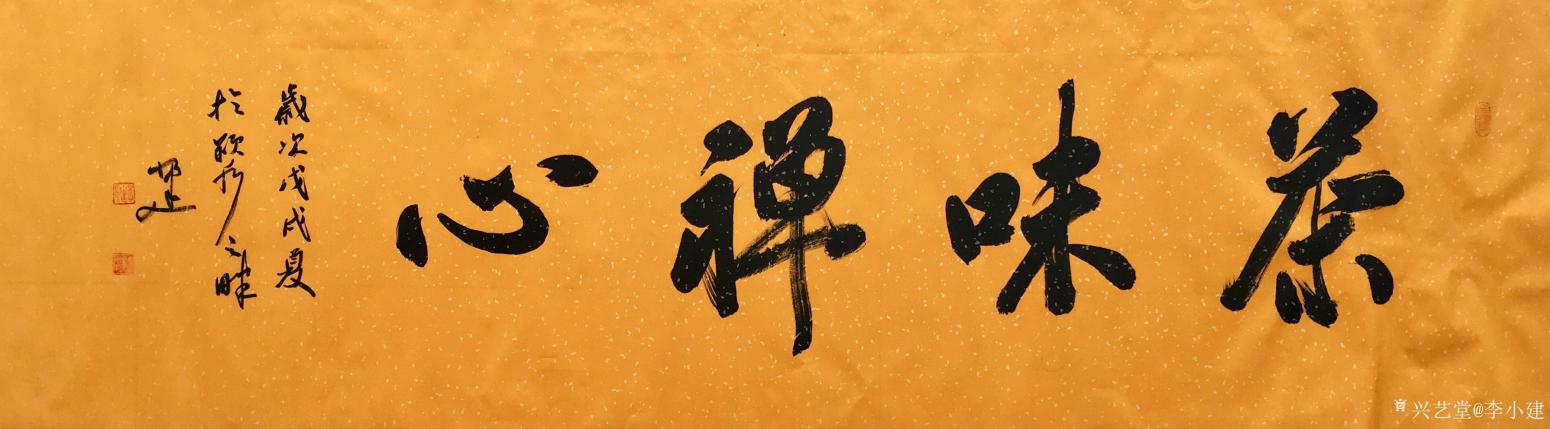 茶味禅心
歲次戊戌夏
於颍州之畔
兴艺堂@李小建